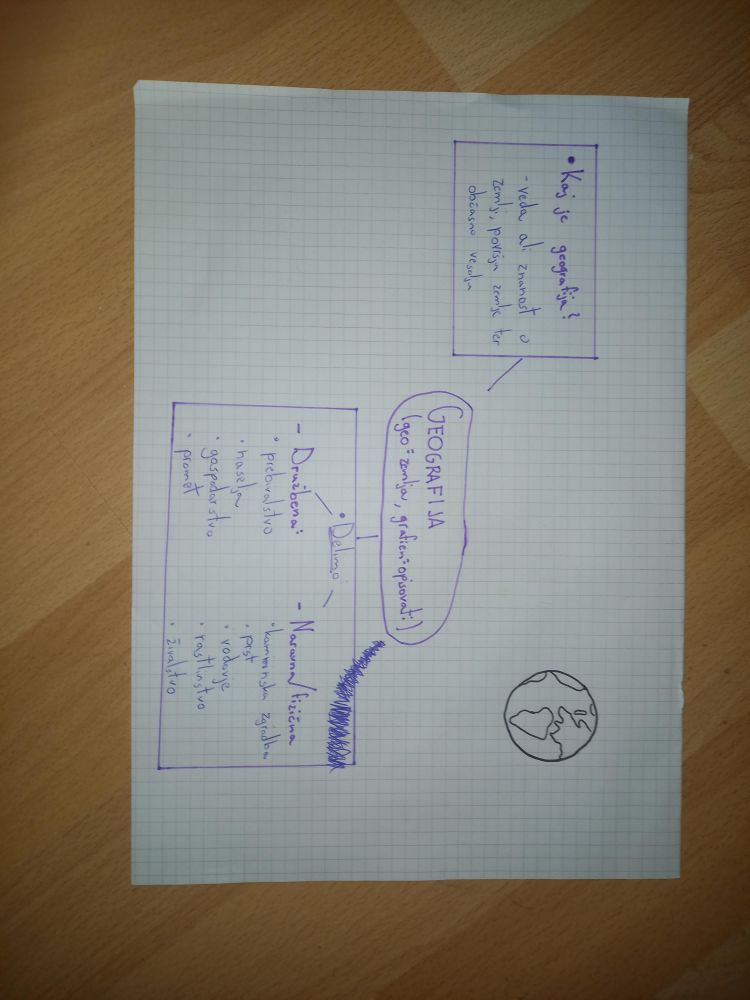 • Kaj je geografija?
- veda ali znanost o
zemlji, površju zemlje ter
občasno vesolju
GEOGRAFIJA
(geo=zemlja, grafien=opisovati)
• Delimo
- Družbena:
• prebivalstvo
• naselja
• gospodarstvo
• promet
- Naravna/fizična
• kamninska zgradba
• prst
• vodovje
• rastlinstvo
• živalstvo